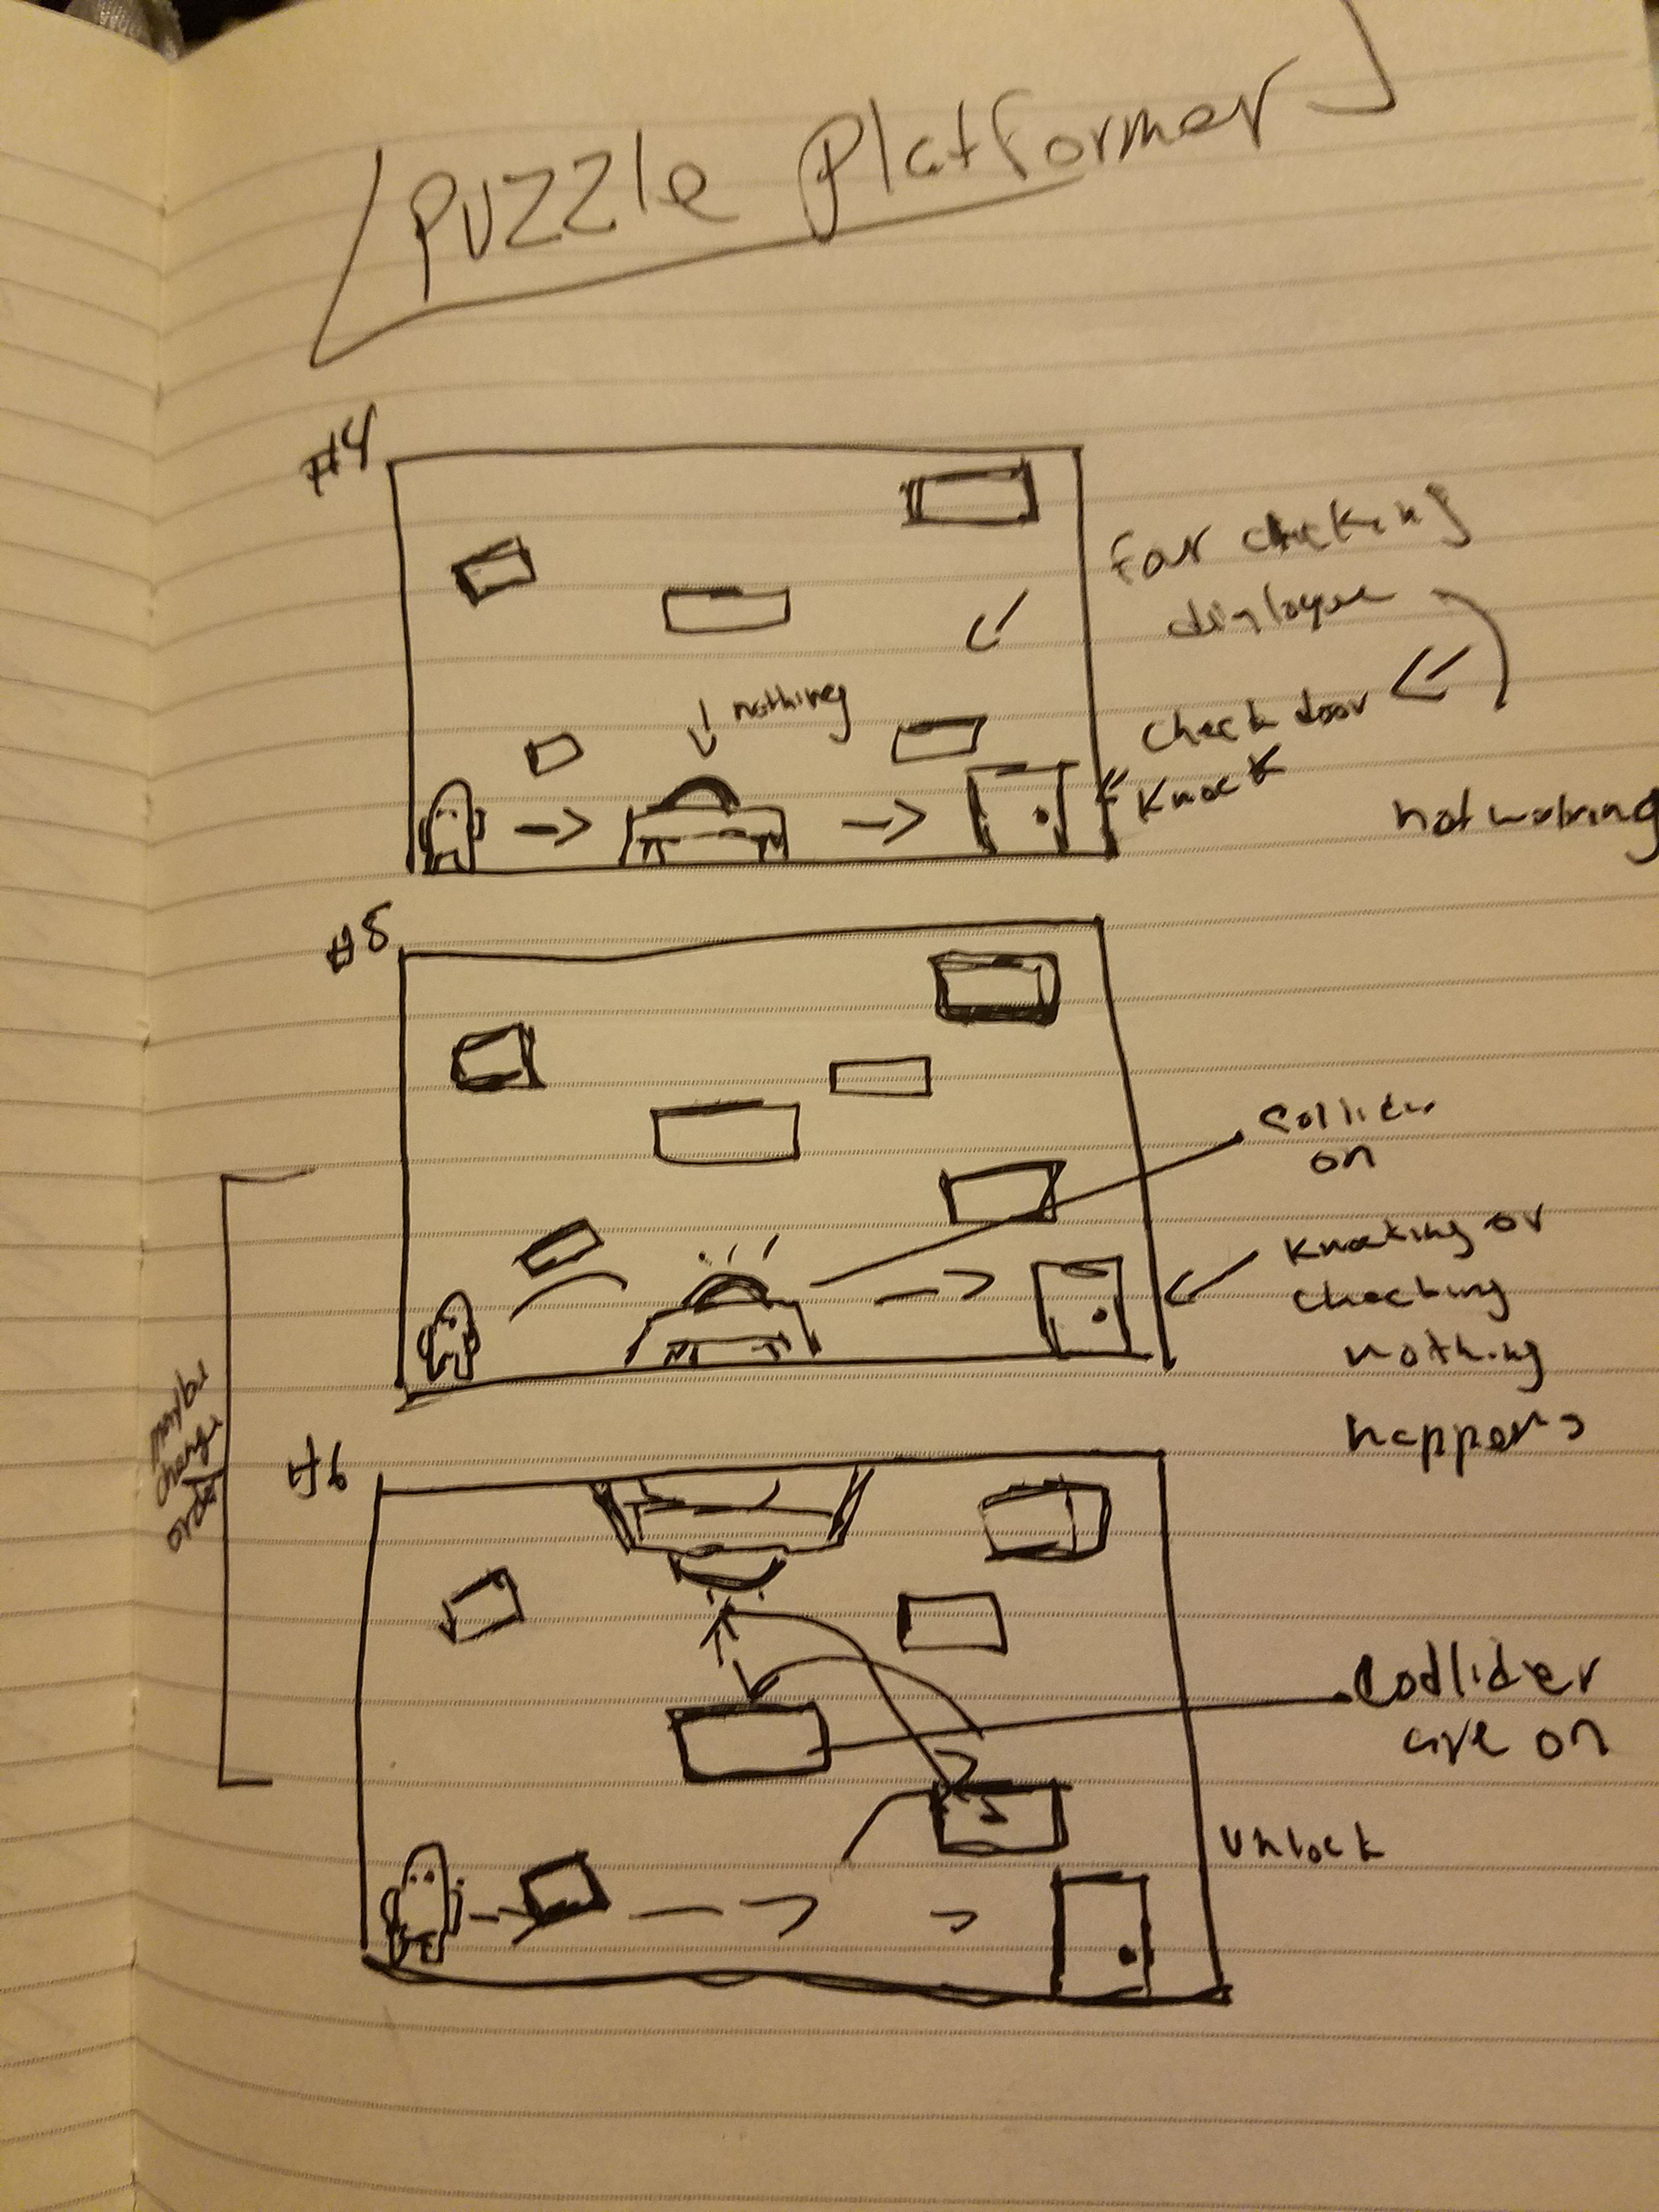 Puzzle Platformer
#4
For checking
dialogue
nothing
check door
knock
not working
#5
Collider
on
knocking or
checking
nothing
happens
maybe
change
order
#6
Collider
are on
unlock